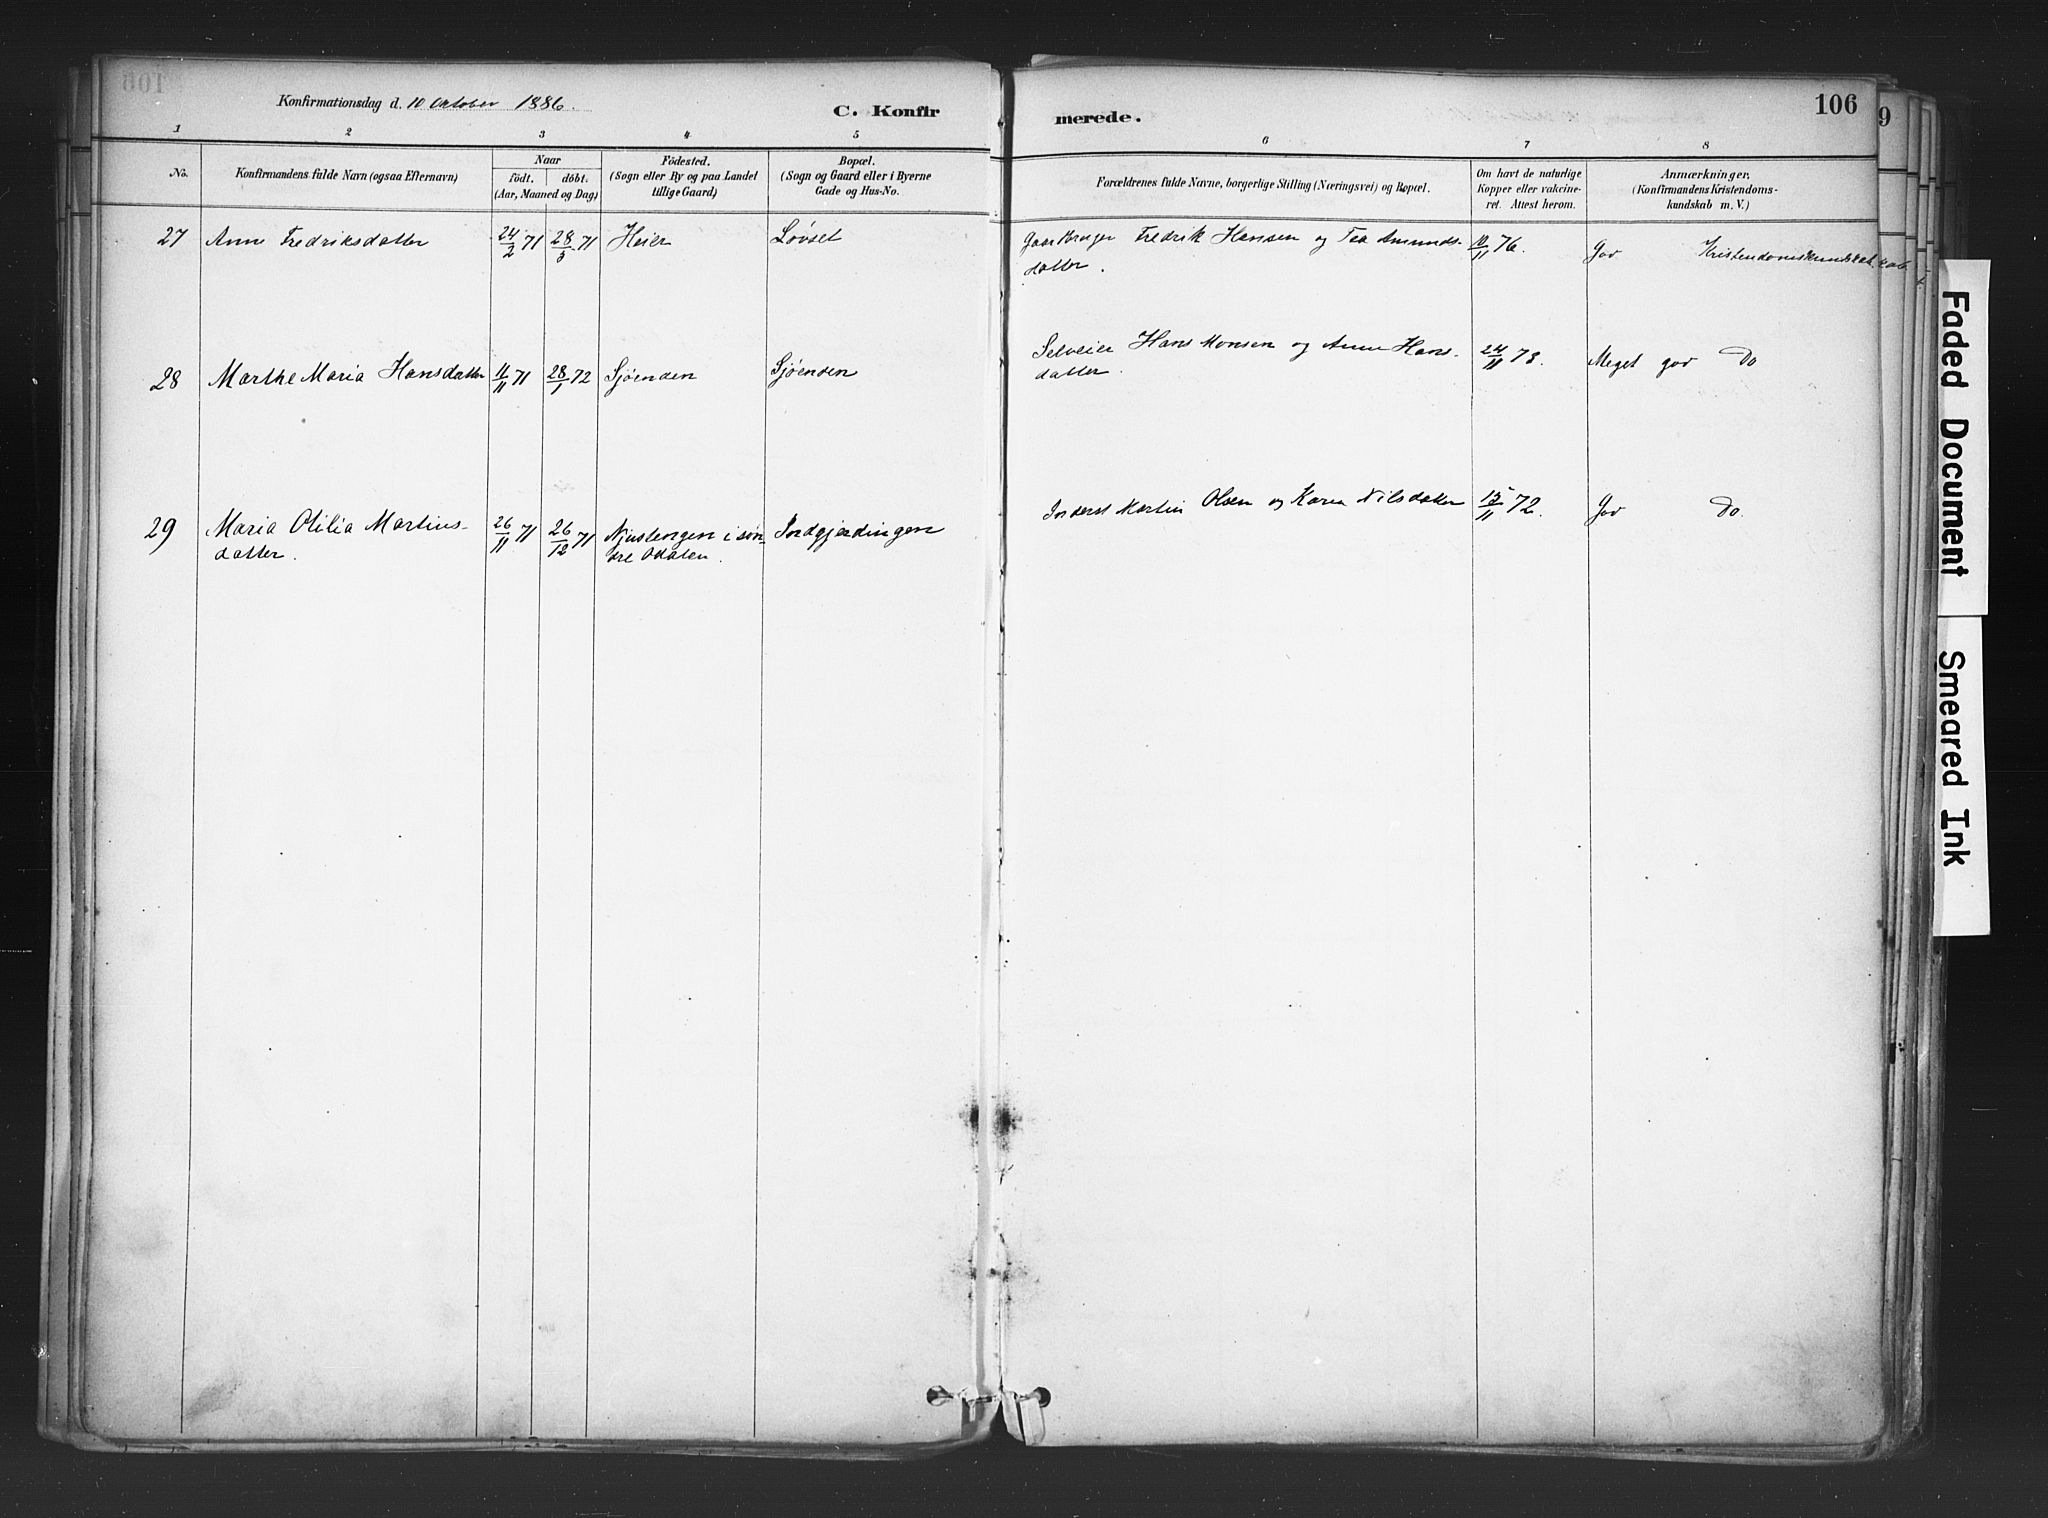 106
Konfirmationsdag d. 10 October 1886.
C. Konfirmerede.
1 2 3 4 5 6 7 8
No.
Konfirmandens fulde Navn (ogsaa Efternavn)
Naar
födt. döbt.
(Aar, Maaned og Dag)
Födested.
(Sogn eller By og paa Landet
tillige Gaard)
Bopæl.
(Sogn og Gaard eller i Byerne
Gade og Hus-No.
Forældrenes fulde Navne, borgerlige Stilling (Næringsvei) og Bopæl.
Om havt de naturlige
Kopper eller vakcine-
ret. Attest herom.
Anmærkninger.
(Konfirmandens Kristendoms-
kundskab m. V.)
27 Anne Fredriksdatter 24/2 71 28/5 71 Heier Løvset Gaardbruger Fredrik Hansen og Tea Amunds-
datter. 10/11 76. God Kristendomskundskab
28 Marthe Maria Hansdatter 11/11 71 28/1 72 Sjøenden Sjøenden Selveier Hans Monsen og Anne Hans-
datter. 24/11 73. Meget god Do
29 Maria Otilia Martins-
datter. 26/11 71 26/12 71 i søn-
dre Odalen. Inderst Martin Olsen og Karen Nilsdatter 15/11 72. God Do.
9
Faded Document
Smeared Ink